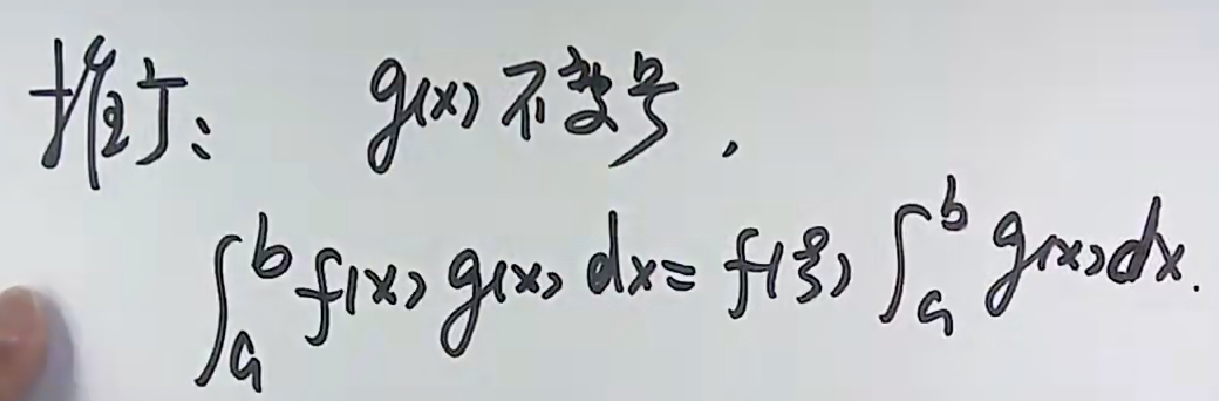 推广: g(x) 不变号.
∫_a^b f(x) g(x) dx = f(ξ) ∫_a^b g(x) dx.